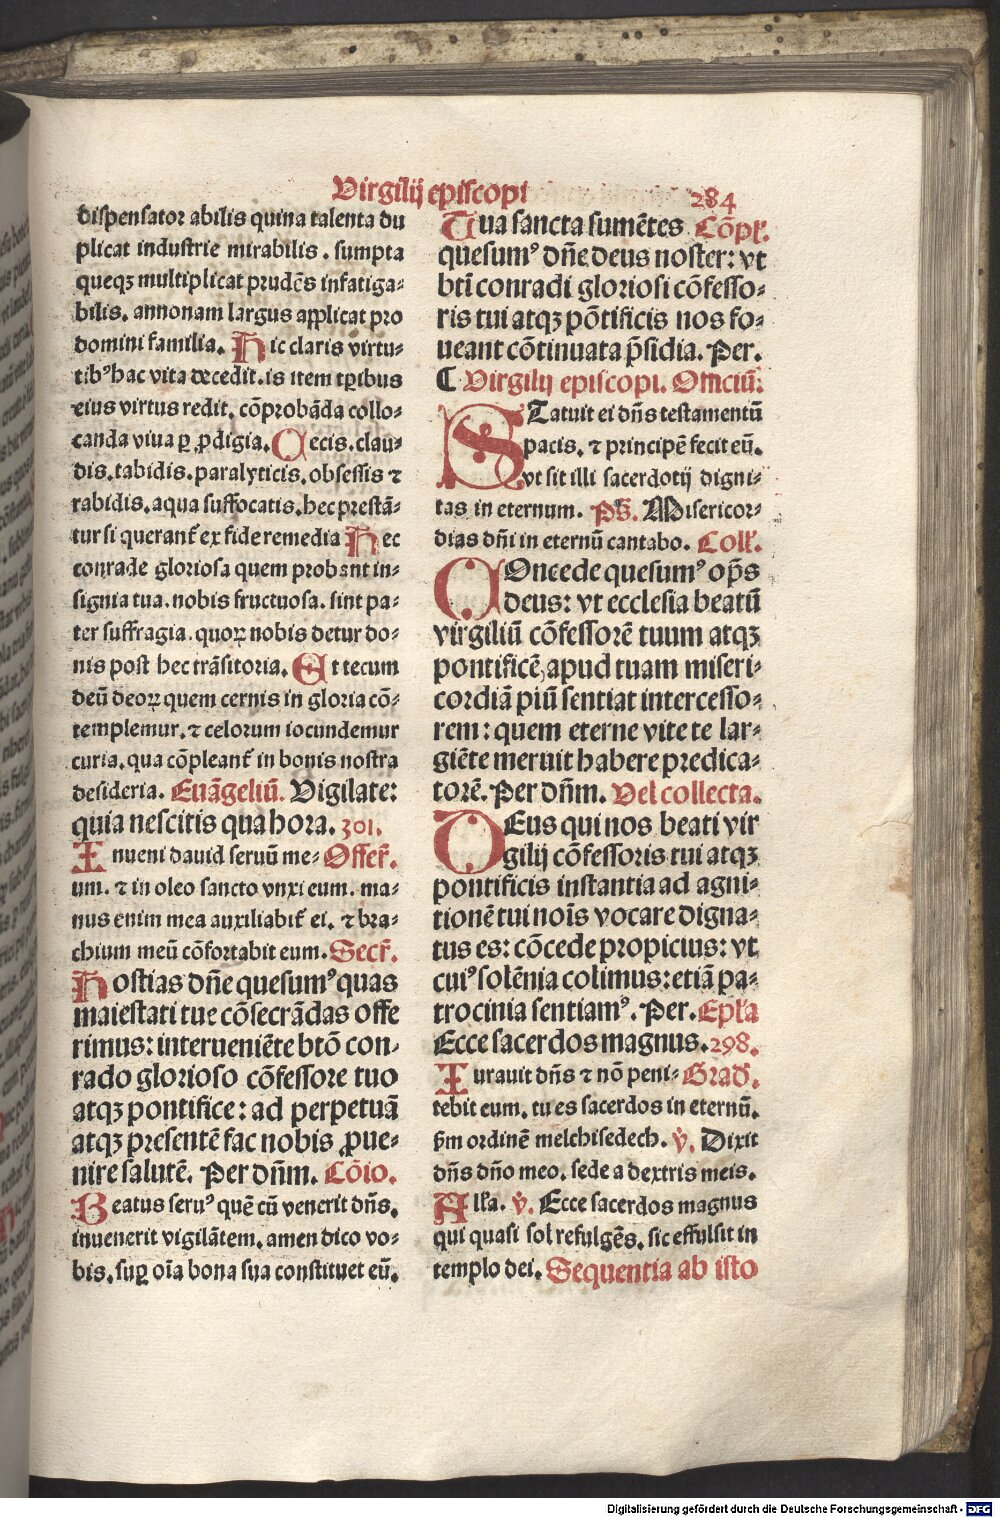 Virgilij episcopi
284
dispensator abilis quina talenta du
plicat industrie mirabilis. sumpta
queqȝ multiplicat prudēs infatiga⸗
bilis. annonam largus applicat pro
domini familia. Hic claris virtu⸗
tibꝰ hac vita decedit. is item tꝑibus
eius virtus redit. cōprobāda collo⸗
canda viua ꝑ ꝓdigia. Cecis. clau⸗
dis. tabidis. paralyticis. obsessis ⁊
rabidis. aqua suffocatis. hec prestā⸗
tur si querant᷑ ex fide remedia Hec
conrade gloriosa quem probant in⸗
signia tua. nobis fructuosa. sint pa⸗
ter suffragia. quoꝝ nobis detur do⸗
nis post hec trāsitoria. Et tecum
deū deoꝝ quem cernis in gloria cō⸗
templemur. ⁊ celorum iocundemur
curia. qua cōpleant᷑ in bonis nostra
desideria. Euāgeliū. Vigilate:
quia nescitis qua hora. 301.
Inueni dauid seruū me⸗ Offer᷑.
um. ⁊ in oleo sancto vnxi eum. ma⸗
nus enim mea auxiliabit᷑ ei. ⁊ bra⸗
chium meū cōfortabit eum. Secr᷑.
Hostias dn̄e quesumꝰ quas
maiestati tue cōsecrādas offe
rimus: interueniēte btō con⸗
rado glorioso cōfessore tuo
atqȝ pontifice: ad perpetuā
atqȝ presentē fac nobis ꝓue⸗
nire salutē. Per dn̄m. Cōio.
Beatus seruꝰ quē cū venerit dn̄s.
inuenerit vigilātem. amen dico vo⸗
bis. suꝑ oīa bona sua constituet eū.
Tua sancta sumētes Cōpl᷑.
quesumꝰ dn̄e deus noster: vt
bt̄i conradi gloriosi cōfesso⸗
ris tui atqȝ pōtificis nos fo⸗
ueant cōtinuata p̄sidia. Per.
⸿ Virgilij episcopi. Officiū:
STatuit ei dn̄s testamentū
pacis. ⁊ principē fecit eū.
vt sit illi sacerdotij digni⸗
tas in eternum. Ps̄. Misericor⸗
dias dn̄i in eternū cantabo. Coll᷑.
COncede quesumꝰ op̄s
deus: vt ecclesia beatū
virgiliū cōfessorē tuum atqȝ
pontificē, apud tuam miseri⸗
cordiā piū sentiat intercesso⸗
rem: quem eterne vite te lar⸗
giēte meruit habere predica⸗
torē. Per dn̄m. Vel collecta.
DEus qui nos beati vir
gilij cōfessoris tui atqȝ
pontificis instantia ad agni⸗
tionē tui noīs vocare digna⸗
tus es: cōcede propicius: vt
cuiꝰ solēnia colimus: etiā pa⸗
trocinia sentiamꝰ. Per. Epl᷑a
Ecce sacerdos magnus. 298.
Iurauit dn̄s ⁊ nō peni⸗ Grad̄.
tebit eum. tu es sacerdos in eternū.
s̄m ordinē melchisedech. v̄. Dixit
dn̄s dn̄o meo. sede a dextris meis.
All᷑a. v̄. Ecce sacerdos magnus
qui quasi sol refulgēs. sic effulsit in
templo dei. Sequentia ab isto
Digitalisierung gefördert durch die Deutsche Forschungsgemeinschaft - DFG